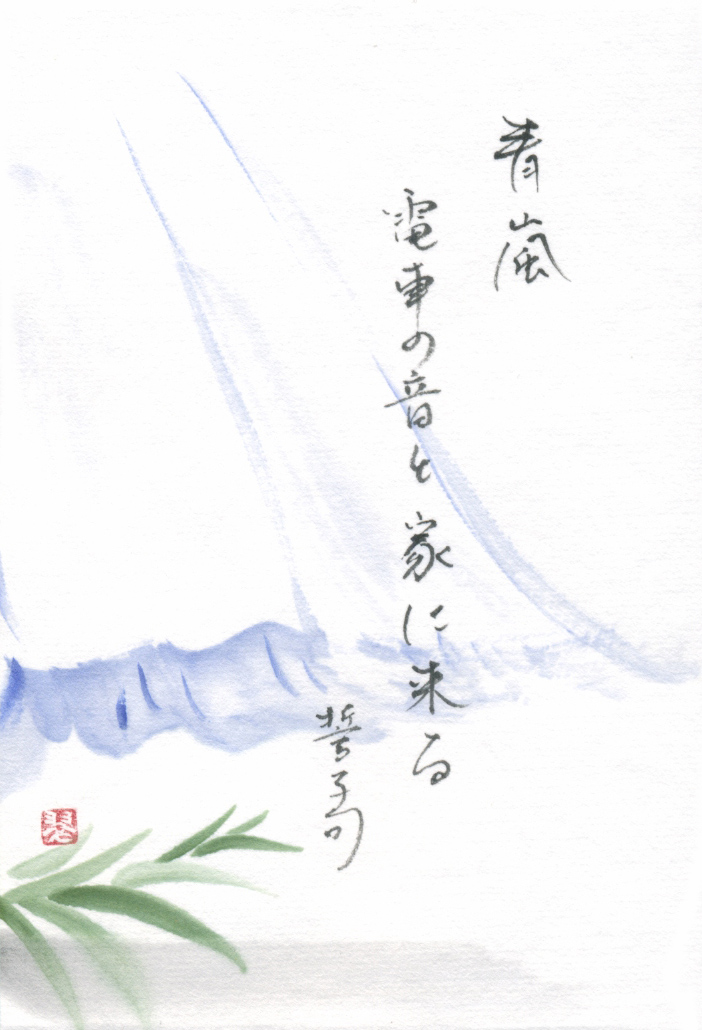 青嵐
電車の音と家に来る
誓子句